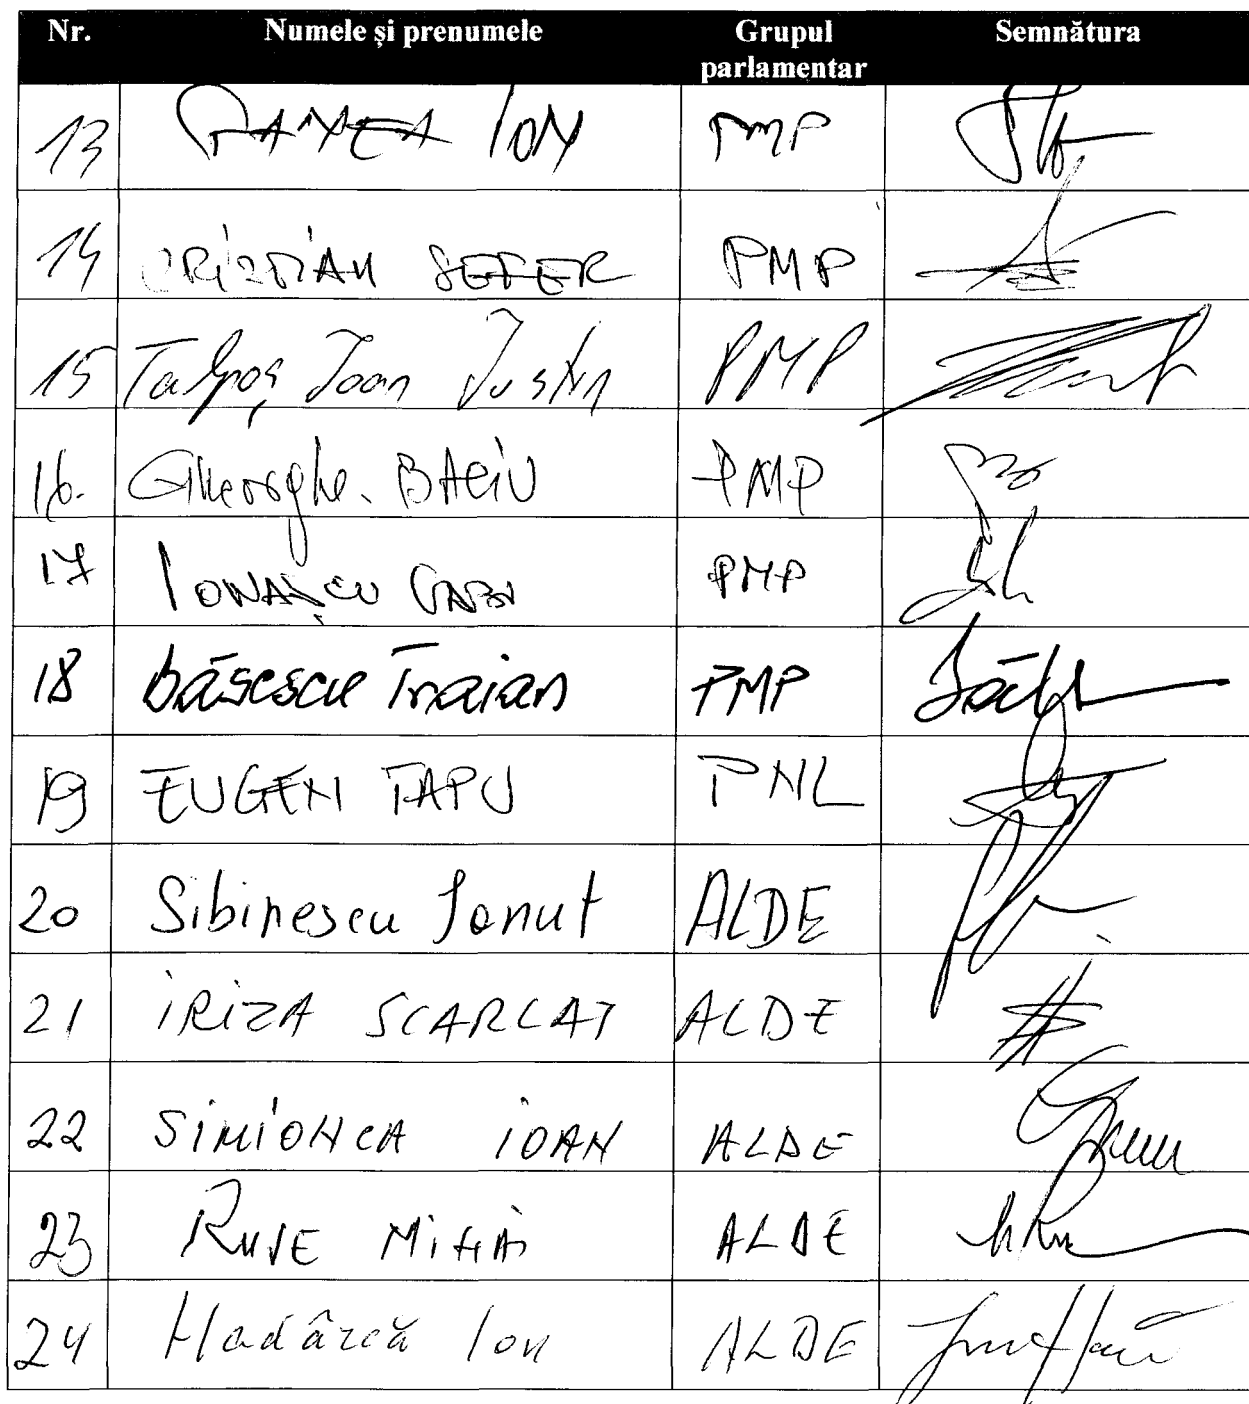 Nr. Numele și prenumele Grupul parlamentar Semnătura
13 GANEA ION PMP
14 CRISTIAN SEFER PMP
15 Talpoș Ioan Justin PMP
16. Gheorghe. BACIU PMP
17 IONAȘCU GABI PMP
18 băsescu Traian PMP
19 EUGEN ȚAPU PNL
20 Sibinescu Ionut ALDE
21 IRIZA SCARLAT ALDE
22 SIMIONCA IOAN ALDE
23 RUSE MIHAI ALDE
24 Hadârcă Ion ALDE